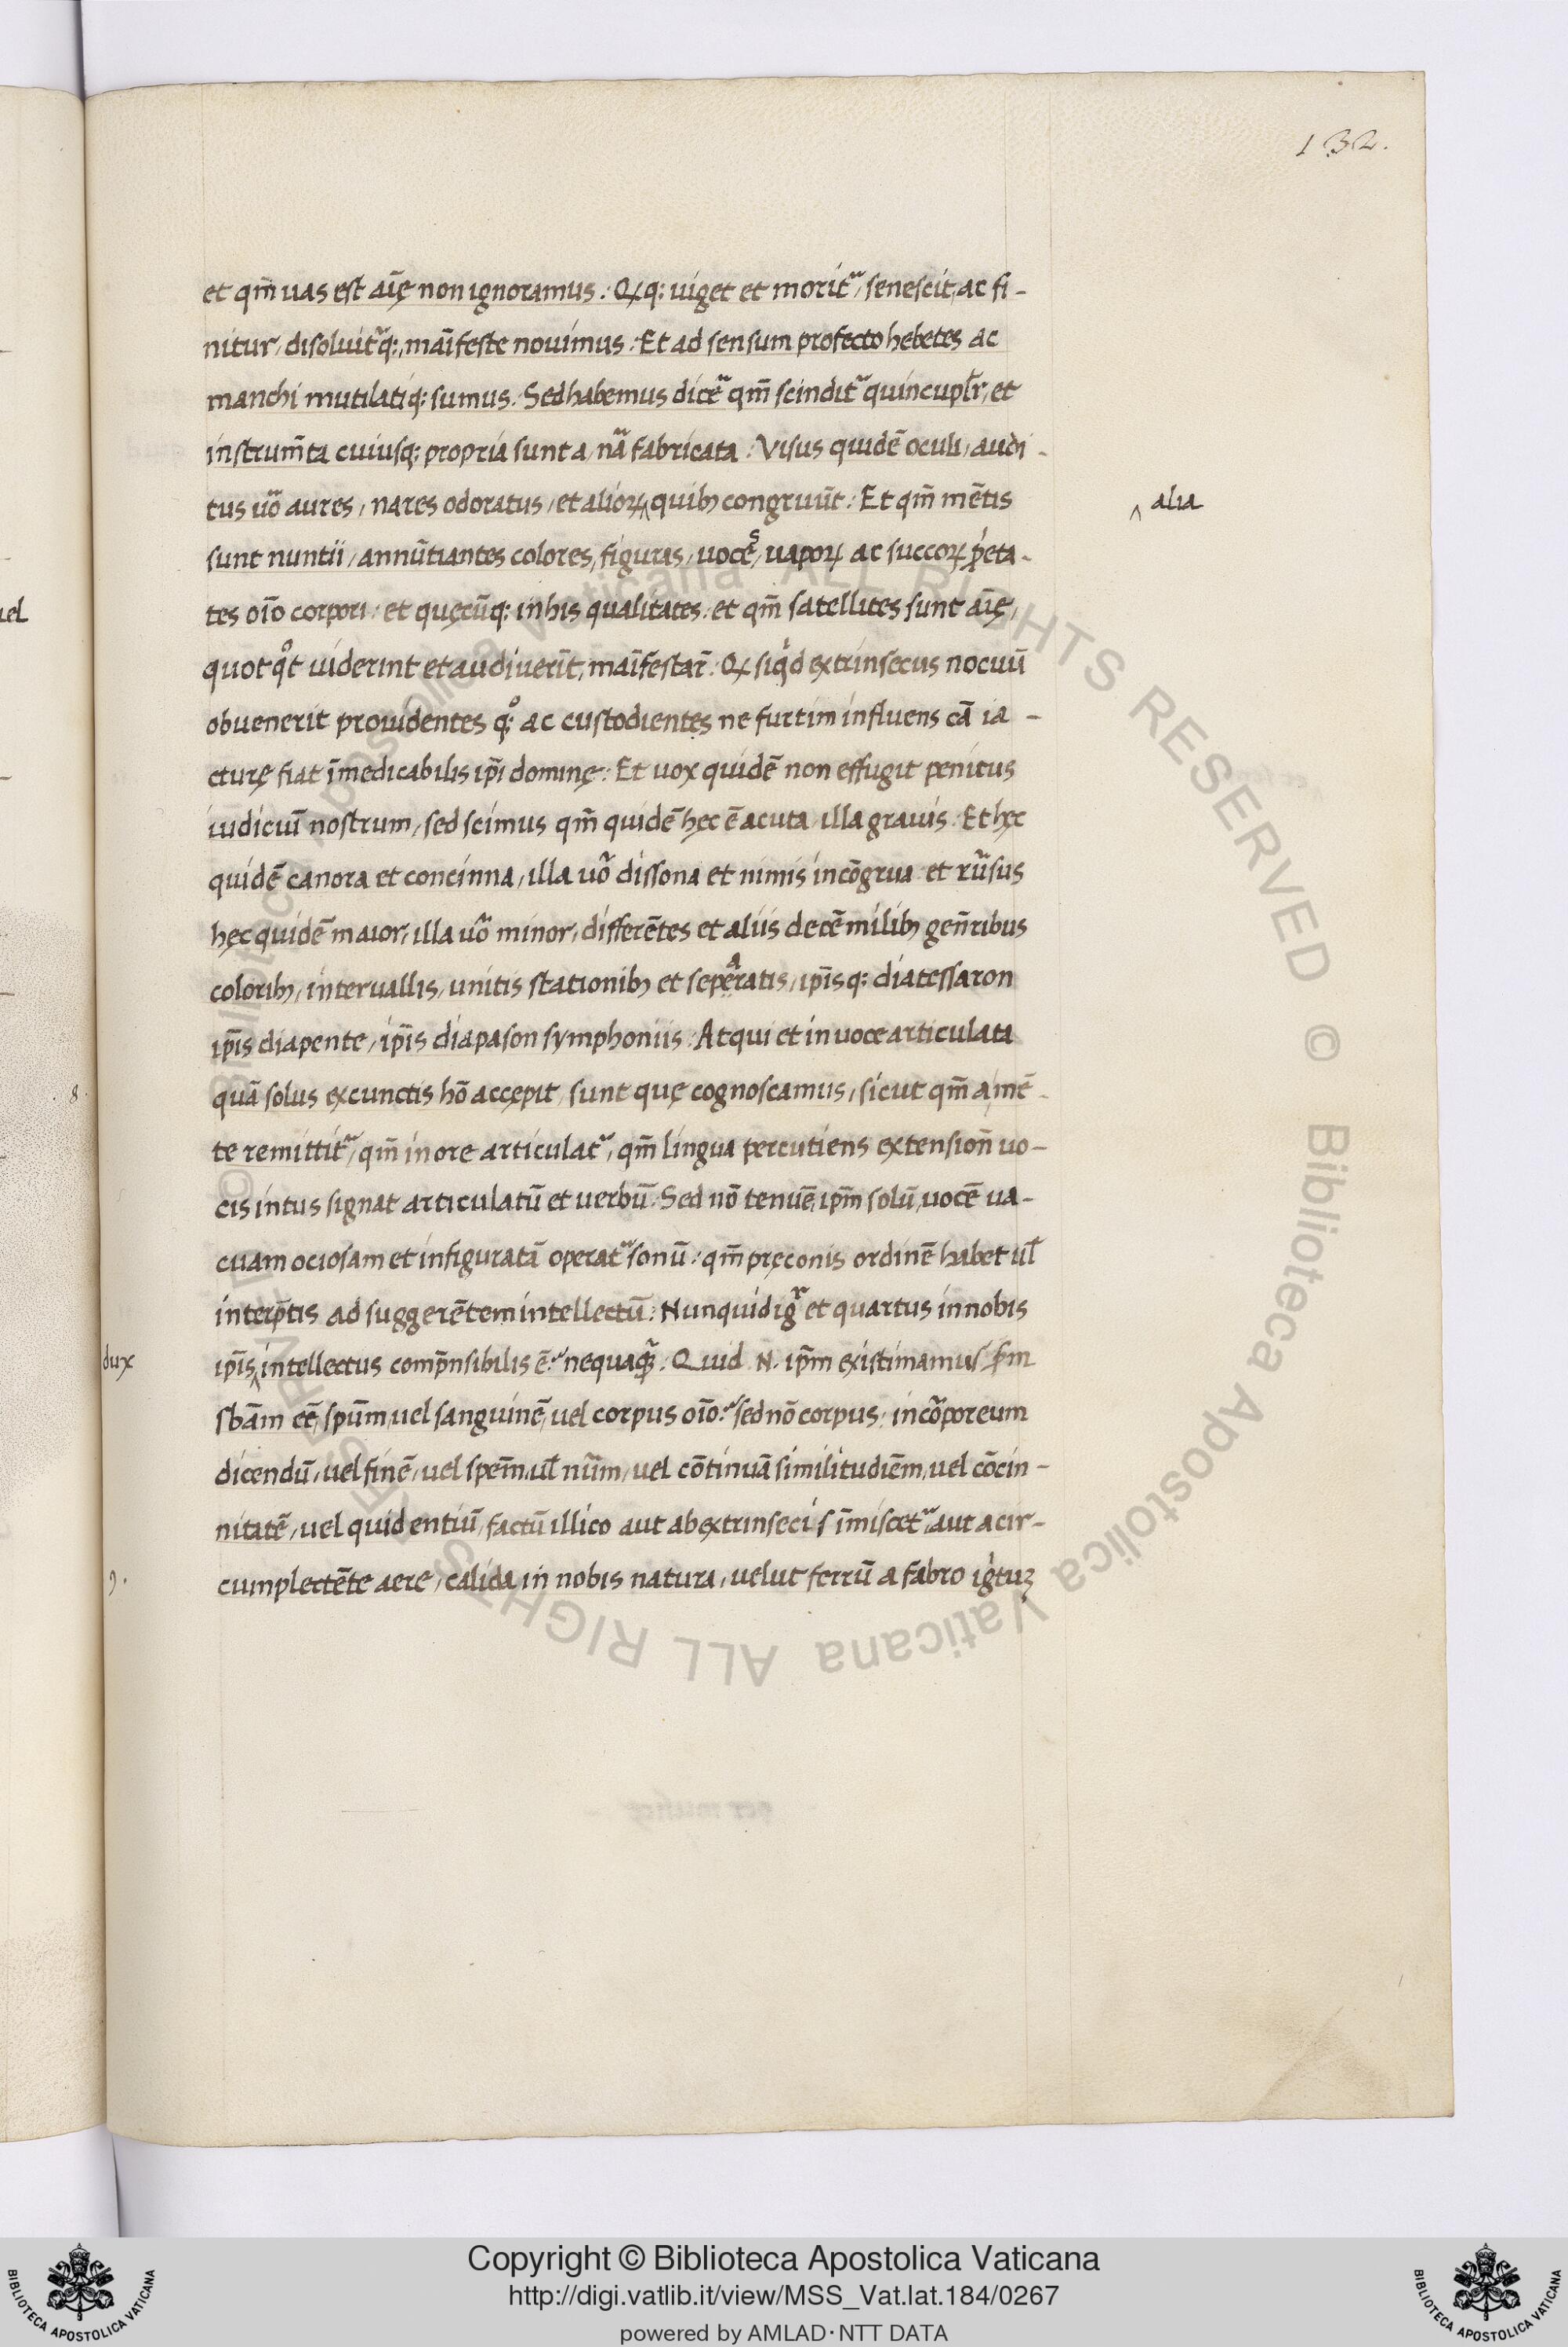 132.
et qm̄ uas est aīę non ignoramus. Qꝝ q: uiget et morit᷑, senescit, ac fi-
nitur, disoluit᷑q:, maīfeste nouimus. Et ad sensum profecto hebetes ac
manchi mutilatiq: sumus. Sed habemus dicē᷑ qm̄ scindit᷑ quincupl̄r, et
instrum̄ta cuiusq: propria sunt a nā᷑ fabricata. Visus quidē oculi, audi-
tus uō᷑ aures, nares odoratus, et alioꝝ ‸ quibꝫ congruūt: Et qm̄ mētis
‸ alia
sunt nuntii, annūtiantes colores, figuras, uoces, uapoꝝ ac succoꝝ ꝓ̍eta-
tes oīo corpori: et quęcūq: in his qualitates: et qm̄ satellites sunt aīę,
quot qͦt uiderint et audiuerīt, maīfestar̄. Qꝝ siqͥd extrinsecus nocuū
obuenerit prouidentes qͦ: ac custodientes ne furtim influens cā᷑ ia-
cturę fiat īmedicabilis ip̄i dominę: Et uox quidē non effugit penitus
iudiciū nostrum, sed scimus qm̄ quidē hęc ē acuta illa grauis. Et hęc
quidē canora et concinna, illa uō᷑ dissona et nimis incōgrua et rū᷑sus
hęc quidē maior, illa uō᷑ minor, differētes et aliis decē milibꝫ gen̄ribus
coloribꝫ, interuallis, unitis stationibꝫ et seperatis, ip̄isq: diatessaron
a
ip̄is diapente, ip̄is diapason symphoniis. Atqui et in uoce articulata
quā solus ex cunctis hō accępit, sunt quę cognoscamus, sicut qm̄ a mē-
te remittit᷑, qm̄ in ore articulat᷑, qm̄ lingua percutiens extension̄ uo-
cis intus signat articulatū et uerbū. Sed nō tenuē, ip̄m solū, uocē ua-
cuam ociosam et infiguratā operat᷑ sonū: qm̄ pręconis ordinē habet ul̄
interp̄tis ad suggerētem intellectū: Nunquid igr̄ et quartus in nobis
dux
ip̄is ‸ intellectus comp̄nsibilis ē? nequaq̄᷑. Quid .N. ip̄m existimamus ꝓm
sbām eē, spūm, uel sanguinē, uel corpus oīo? sed nō corpus: incō᷑poreum
dicendū, uel finē, uel spem̄, ul̄ nūm, uel cōtinuā similitudiēm, uel cōcin-
nitatē, uel quid entiū, factū illico aut ab extrinsecis īmiscet᷑, aut a cir-
9.
cumplectēte aere, calida in nobis natura, velut ferrū a fabro igͥtuꝫ
uel
8.
Copyright © Biblioteca Apostolica Vaticana
http://digi.vatlib.it/view/MSS_Vat.lat.184/0267
powered by AMLAD·NTT DATA
BIBLIOTECA APOSTOLICA VATICANA
BIBLIOTECA APOSTOLICA VATICANA
© Biblioteca Apostolica Vaticana ALL RIGHTS RESERVED © Biblioteca Apostolica Vaticana ALL RIGHTS RESERVED